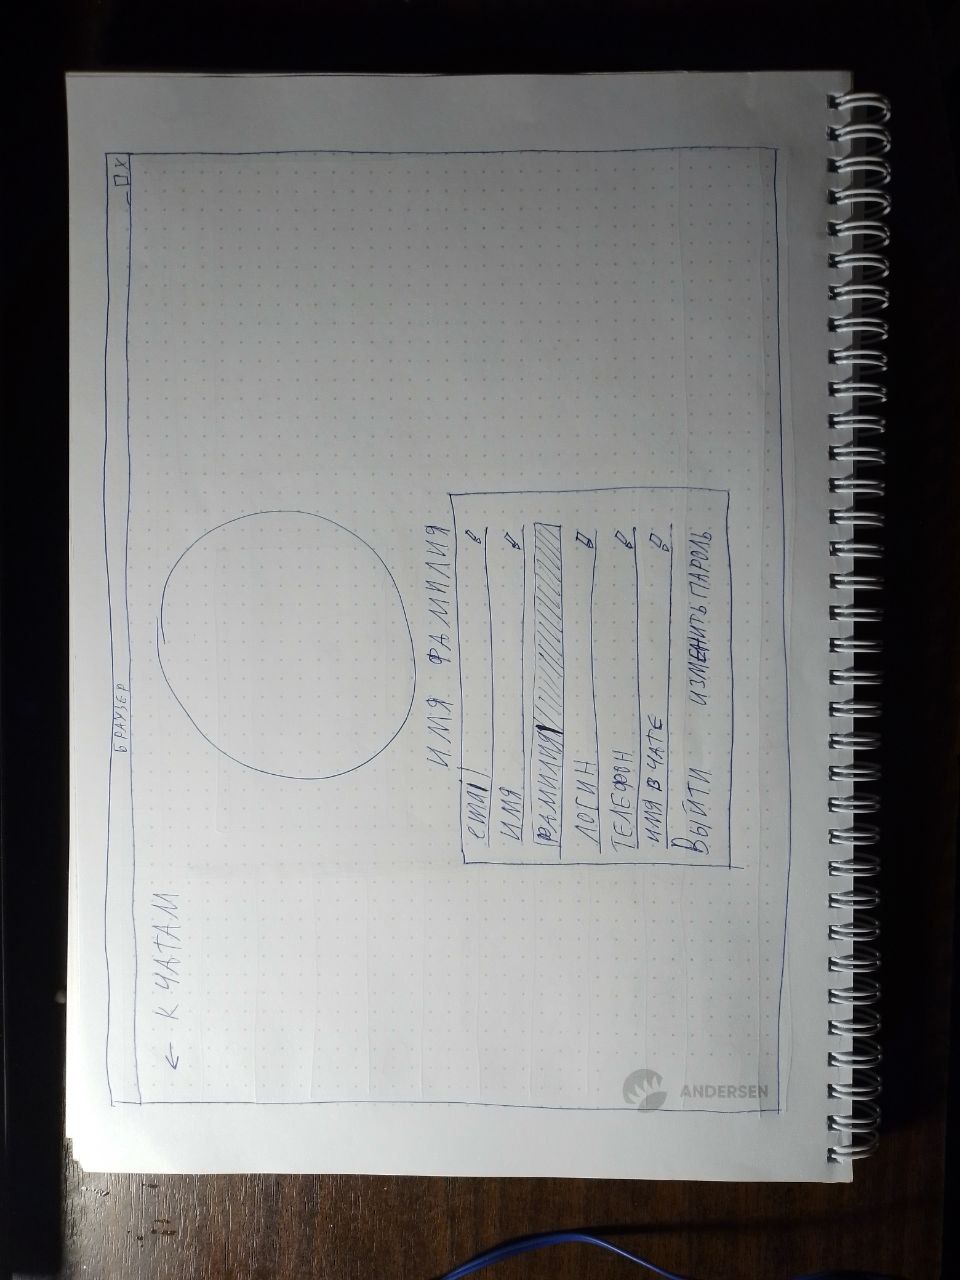 БРАУЗЕР
← К ЧАТАМ
ИМЯ ФАМИЛИЯ
email
ИМЯ
ФАМИЛИЯ
ЛОГИН
ТЕЛЕФОН
ИМЯ В ЧАТЕ
ВЫЙТИ ИЗМЕНИТЬ ПАРОЛЬ
ANDERSEN